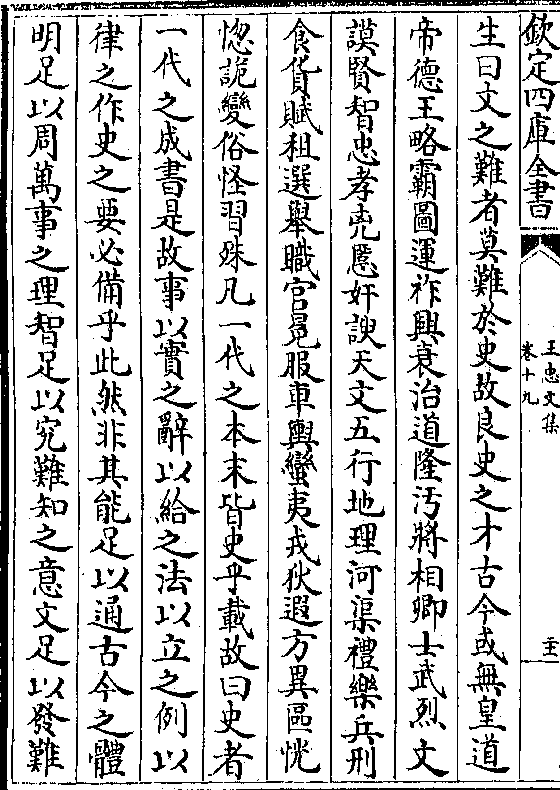 欽定四庫全書
王忠文集
卷十九
生曰文之難者莫難於史故良史之才古今或無皇道
帝德王略霸圖運祚興衰治道隆汚將相卿士武烈文
謨賢智忠孝兇慝奸諛天文五行地理河渠禮樂兵刑
食貨賦租選舉職官冕服車輿蠻夷戎狄遐方異區恍
惚詭變俗怪習殊凡一代之本末皆史乎載故曰史者
一代之成書是故事以實之辭以給之法以立之例以
律之作史之要必備乎此然非其能足以通古今之體
明足以周萬事之理智足以究難知之意文足以發難